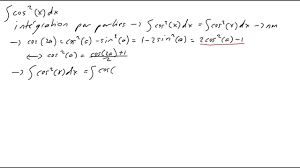 ∫cos²(x)dx
intégration par parties → ∫cos²(x)dx = ∫cos²(x)dx →
→ cos(2θ) = cos²(θ) - sin²(θ) = 1 - 2sin²(θ) = 2cos²(θ) - 1
⟺ cos²(θ) = cos(2θ)+1 / 2
→ ∫cos²(x)dx = ∫cos(